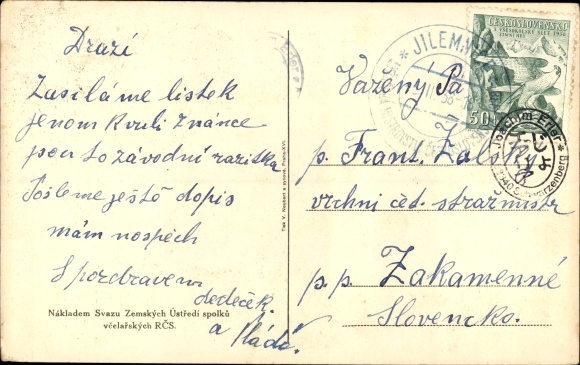 Drazí
Zasíláme listek
jenom kvuli známce
jsou to závodní razítka
Pošleme ještě dopis
mám nospěch
S pozdravem
dedeček
a Vládá.
Nákladem Svazu Zemských Ústředí spolků
včelařských RČS.
Tisk V. Neubert a synové, Praha-XVI.
ČESKOSLOVENSKO
X. VSESOKOLSKÝ SLET 1938
ZIMNÍ HRY
50
JILEMN
Joachim Erler
Schwarzenberg
Vážený Pa
p. Frant. Zálský
vrchni čet. strazmistr
p. p. Zakamenné
Slovencko.